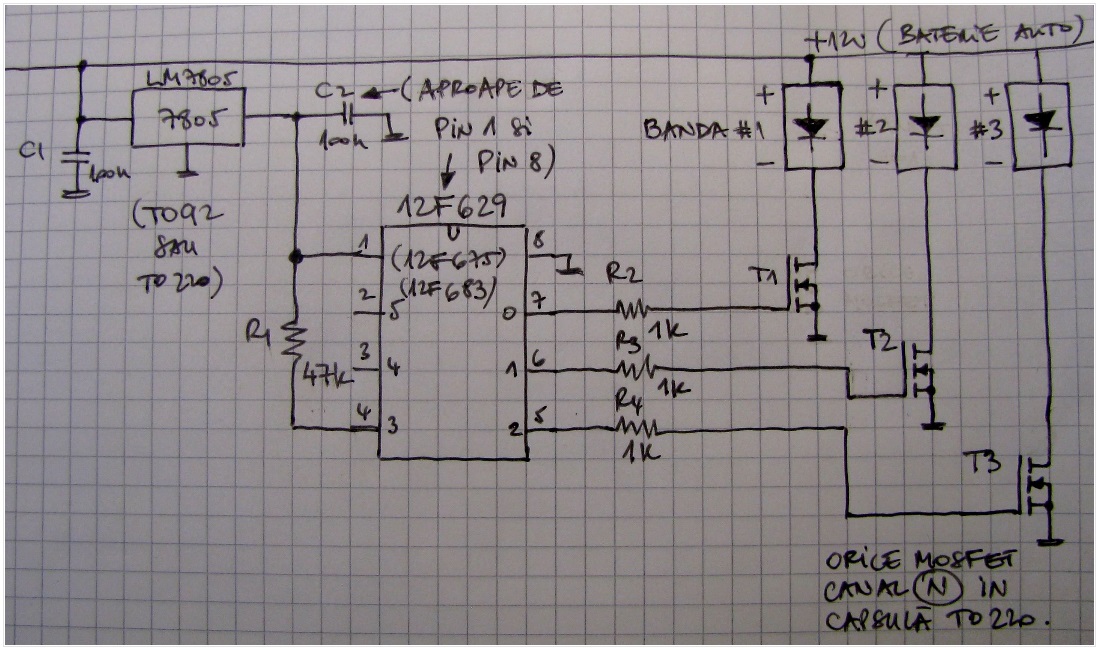 +12V (BATERIE AUTO)
LM7805
7805
C1
100n
(TO92
SAU
TO220)
C2
100n
(APROAPE DE
PIN 1 SI
PIN 8)
12F629
(12F675)
(12F683)
1
2
5
3
4
4
3
8
0
7
1
6
2
5
R1
47K
R2
1K
R3
1K
R4
1K
BANDA #1
+
−
#2
+
−
#3
+
−
T1
T2
T3
ORICE MOSFET
CANAL N IN
CAPSULĂ TO220.